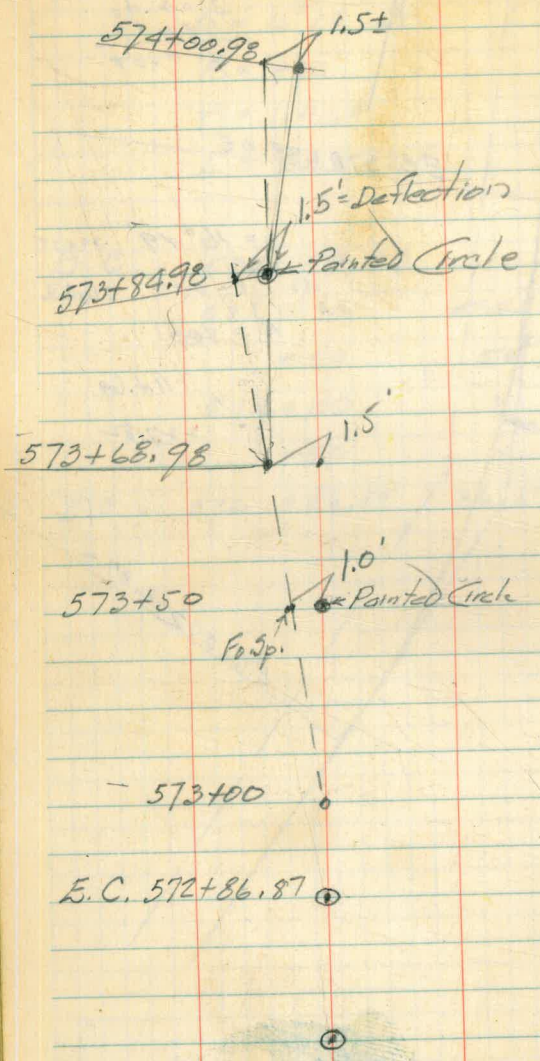 574+00.98 1.5±
1.5'= Deflection
573+84.98 Painted Circle
573+68.98 1.5'
1.0'
573+50 Painted Circle
Fd Sp.
573+00
E.C. 572+86.87